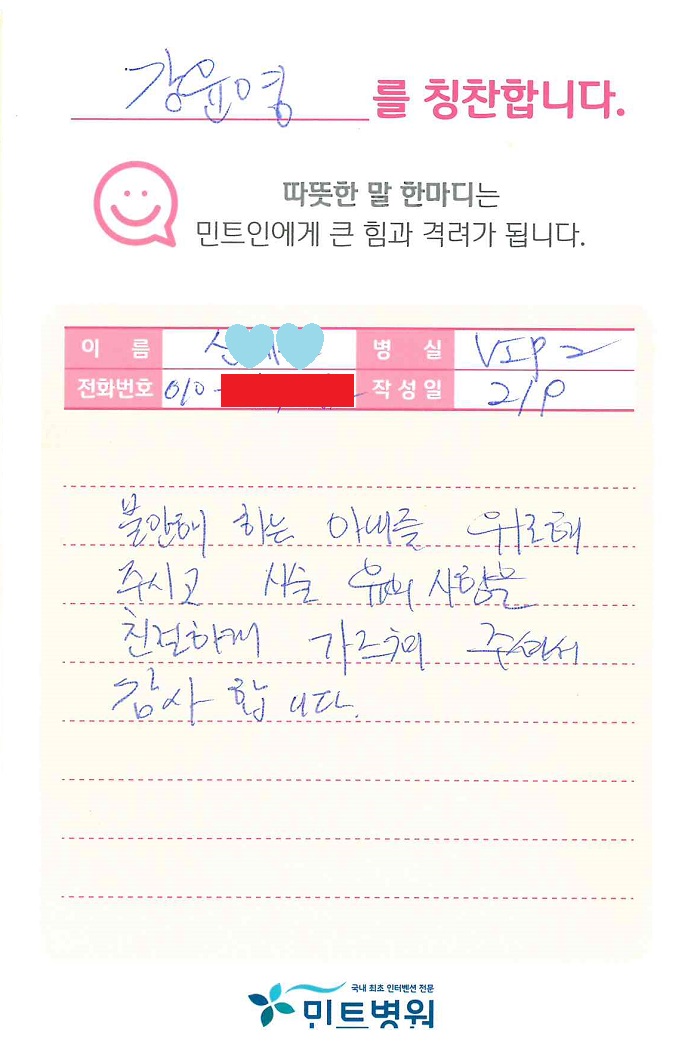 강윤영 를 칭찬합니다.
따뜻한 말 한마디는
민트인에게 큰 힘과 격려가 됩니다.
이 름 병 실 VIP 2
전화번호 010- 작성일 21P
불안해 하는 아내를 위로해
주시고 시술 유의 사항을
친절하게 가르쳐 주셔서
감사 합니다.
국내 최초 인터벤션 전문
민트병원